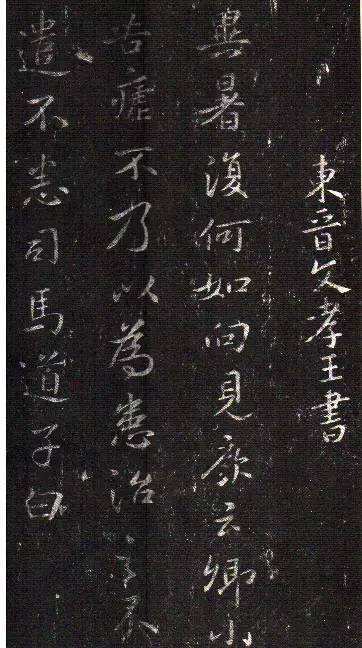 東晉文孝王書
異暑復何如向見康云卿小
苦瘧不乃以為患治不
遣不悉司馬道子白